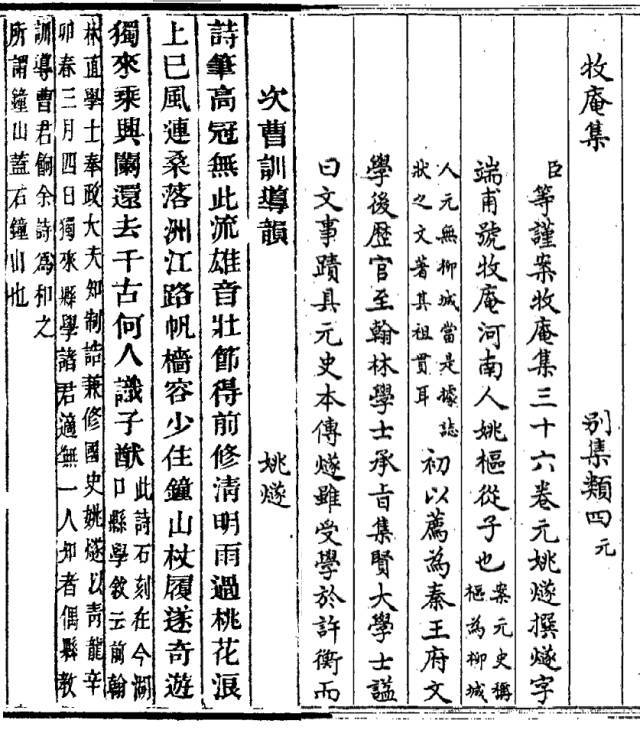 牧庵集 別集類四 元
臣等謹案牧庵集三十六卷元姚燧撰燧字
端甫號牧庵河南人姚樞從子也
案元史稱
樞為柳城
人元無柳城當是據誌
狀之文著其祖貫耳
初以薦為秦王府文
學後歷官至翰林學士承旨集賢大學士諡
曰文事蹟具元史本傳燧雖受學於許衡而
次曹訓導韻 姚燧
詩筆高冠無此流雄音壯節得前修清明雨過桃花浪
上巳風連桑落洲江路帆檣容少住鐘山杖履遂奇遊
獨來乘興闌還去千古何人識子猷
此詩石刻在今湖
口縣學敘云前翰
林直學士奉政大夫知制誥兼修國史姚燧以青龍辛
卯春三月四日獨來縣學諸君適無一人知者偶縣教
訓導曹君餉余詩爲和之
所謂鐘山蓋石鐘山也